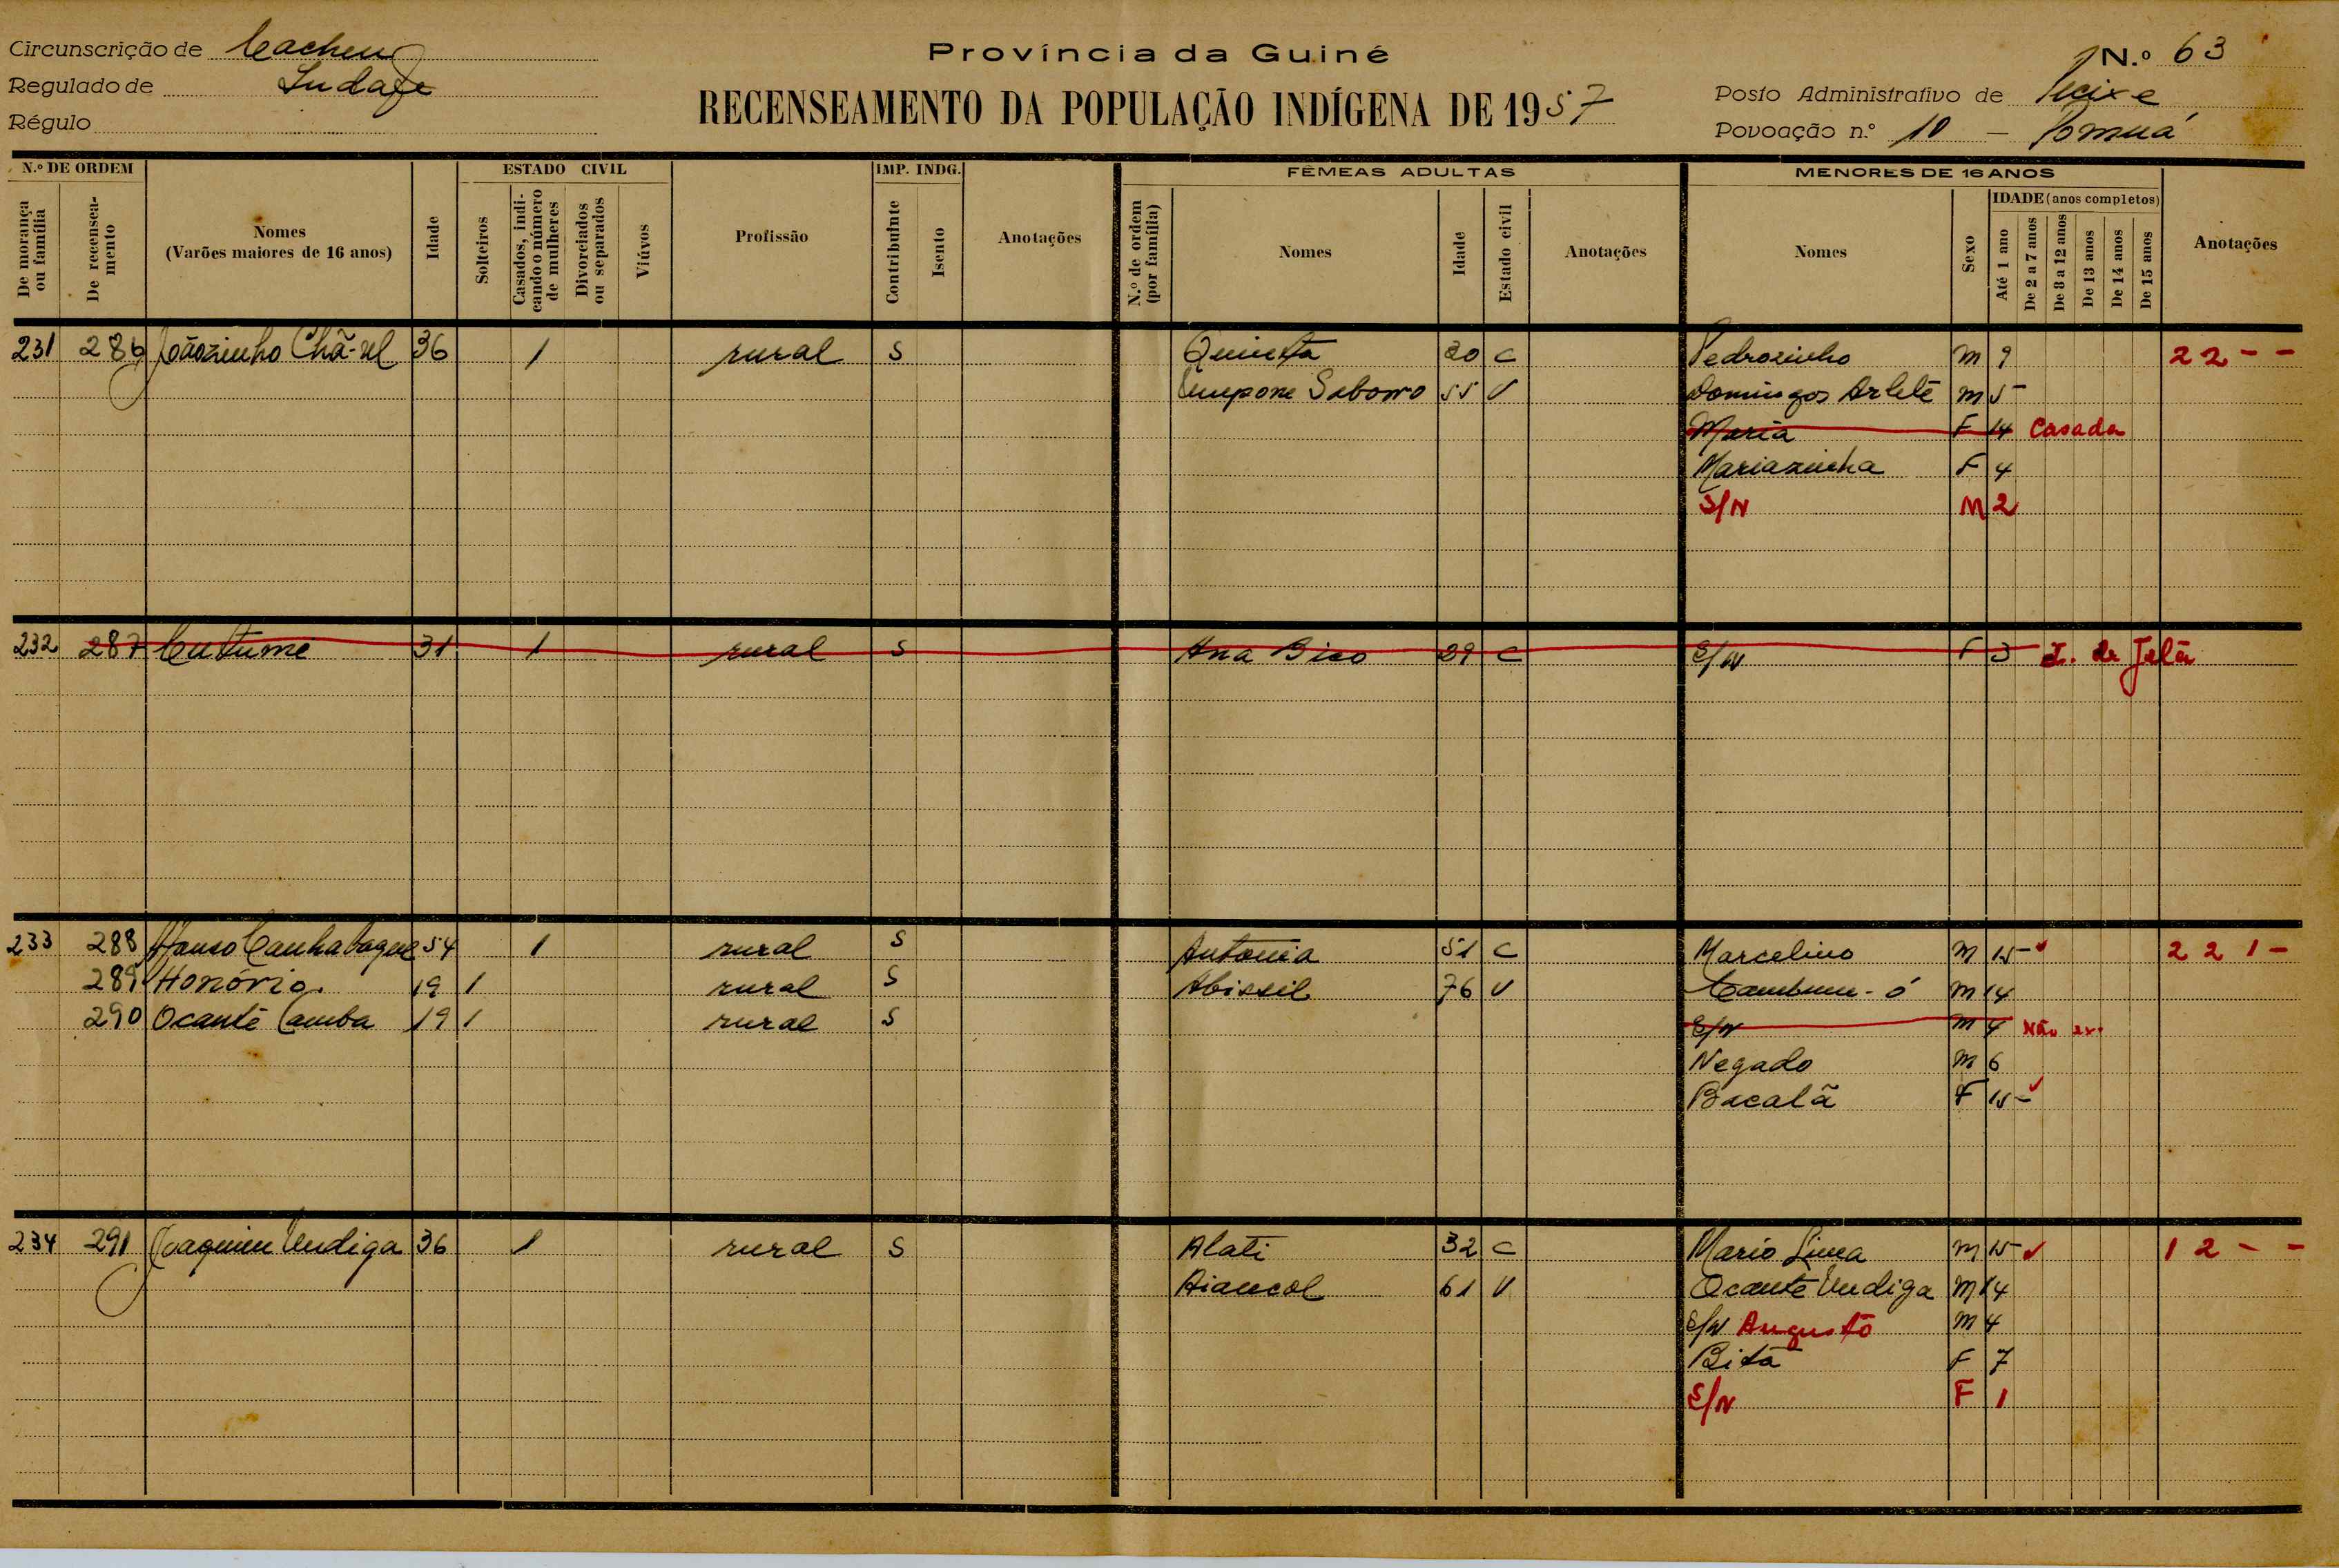 Circunscrição de Cacheu
Regulado de
Régulo
Província da Guiné
RECENSEAMENTO DA POPULAÇÃO INDÍGENA DE 1957
N.º 63
Posto Administrativo de
Povoação n.º 10 –
N.º DE ORDEM
De morança ou família
De recenseamento
Nomes
(Varões maiores de 16 anos)
Idade
ESTADO CIVIL
Solteiros
Casados, indicando o número de mulheres
Divorciados ou separados
Viúvos
Profissão
IMP. INDG.
Contribuinte
Isento
Anotações
N.º de ordem (por família)
FÊMEAS ADULTAS
Nomes
Idade
Estado civil
Anotações
MENORES DE 16 ANOS
Nomes
Sexo
IDADE (anos completos)
Até 1 ano
De 2 a 7 anos
De 8 a 12 anos
De 13 anos
De 14 anos
De 15 anos
Anotações
231 286 Joãozinho 36 1 rural S Quinta 30 C Pedrozinho M 9 2 2 - -
55 V Domingos Arlete M 5
Maria F 14 Casada
Mariazinha F 4
S/N M 2
232 287 Cutume 31 1 rural S Ana Bico 29 C S/N F 3
233 288 Afonso Canhabaque 54 1 rural S Antonia 51 C Marcelino M 15 ✓ 2 2 1 -
289 Honório 19 1 rural S Abissil 76 V M 14
290 Ocante Camba 19 1 rural S S/N M 4 Não ex.
Negado M 6
Bacalã F 15 ✓
234 291 Joaquim Undiga 36 1 rural S Alati 32 C Mario Lima M 15 ✓ 1 2 - -
Aiancol 61 V Ocante Undiga M 14
S/N Augusto M 4
Bita F 7
S/N F 1